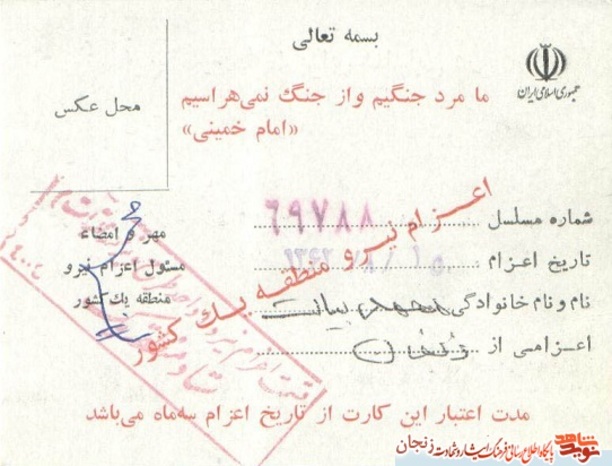 بسمه تعالی
جمهوری اسلامی ایران
ما مرد جنگیم و از جنگ نمی‌هراسیم
«امام خمینی»
محل عکس
شماره مسلسل ۶۹۷۸۸
تاریخ اعزام
نام و نام خانوادگی محمد بیات
اعزامی از زنجان
مهر و امضاء
مسئول اعزام نیرو
منطقه یک کشور
اعزام نیرو منطقه یک کشور
مدت اعتبار این کارت از تاریخ اعزام سه‌ماه می‌باشد
نوید شاهد
پایگاه اطلاع رسانی فرهنگ ایثار و شهادت زنجان